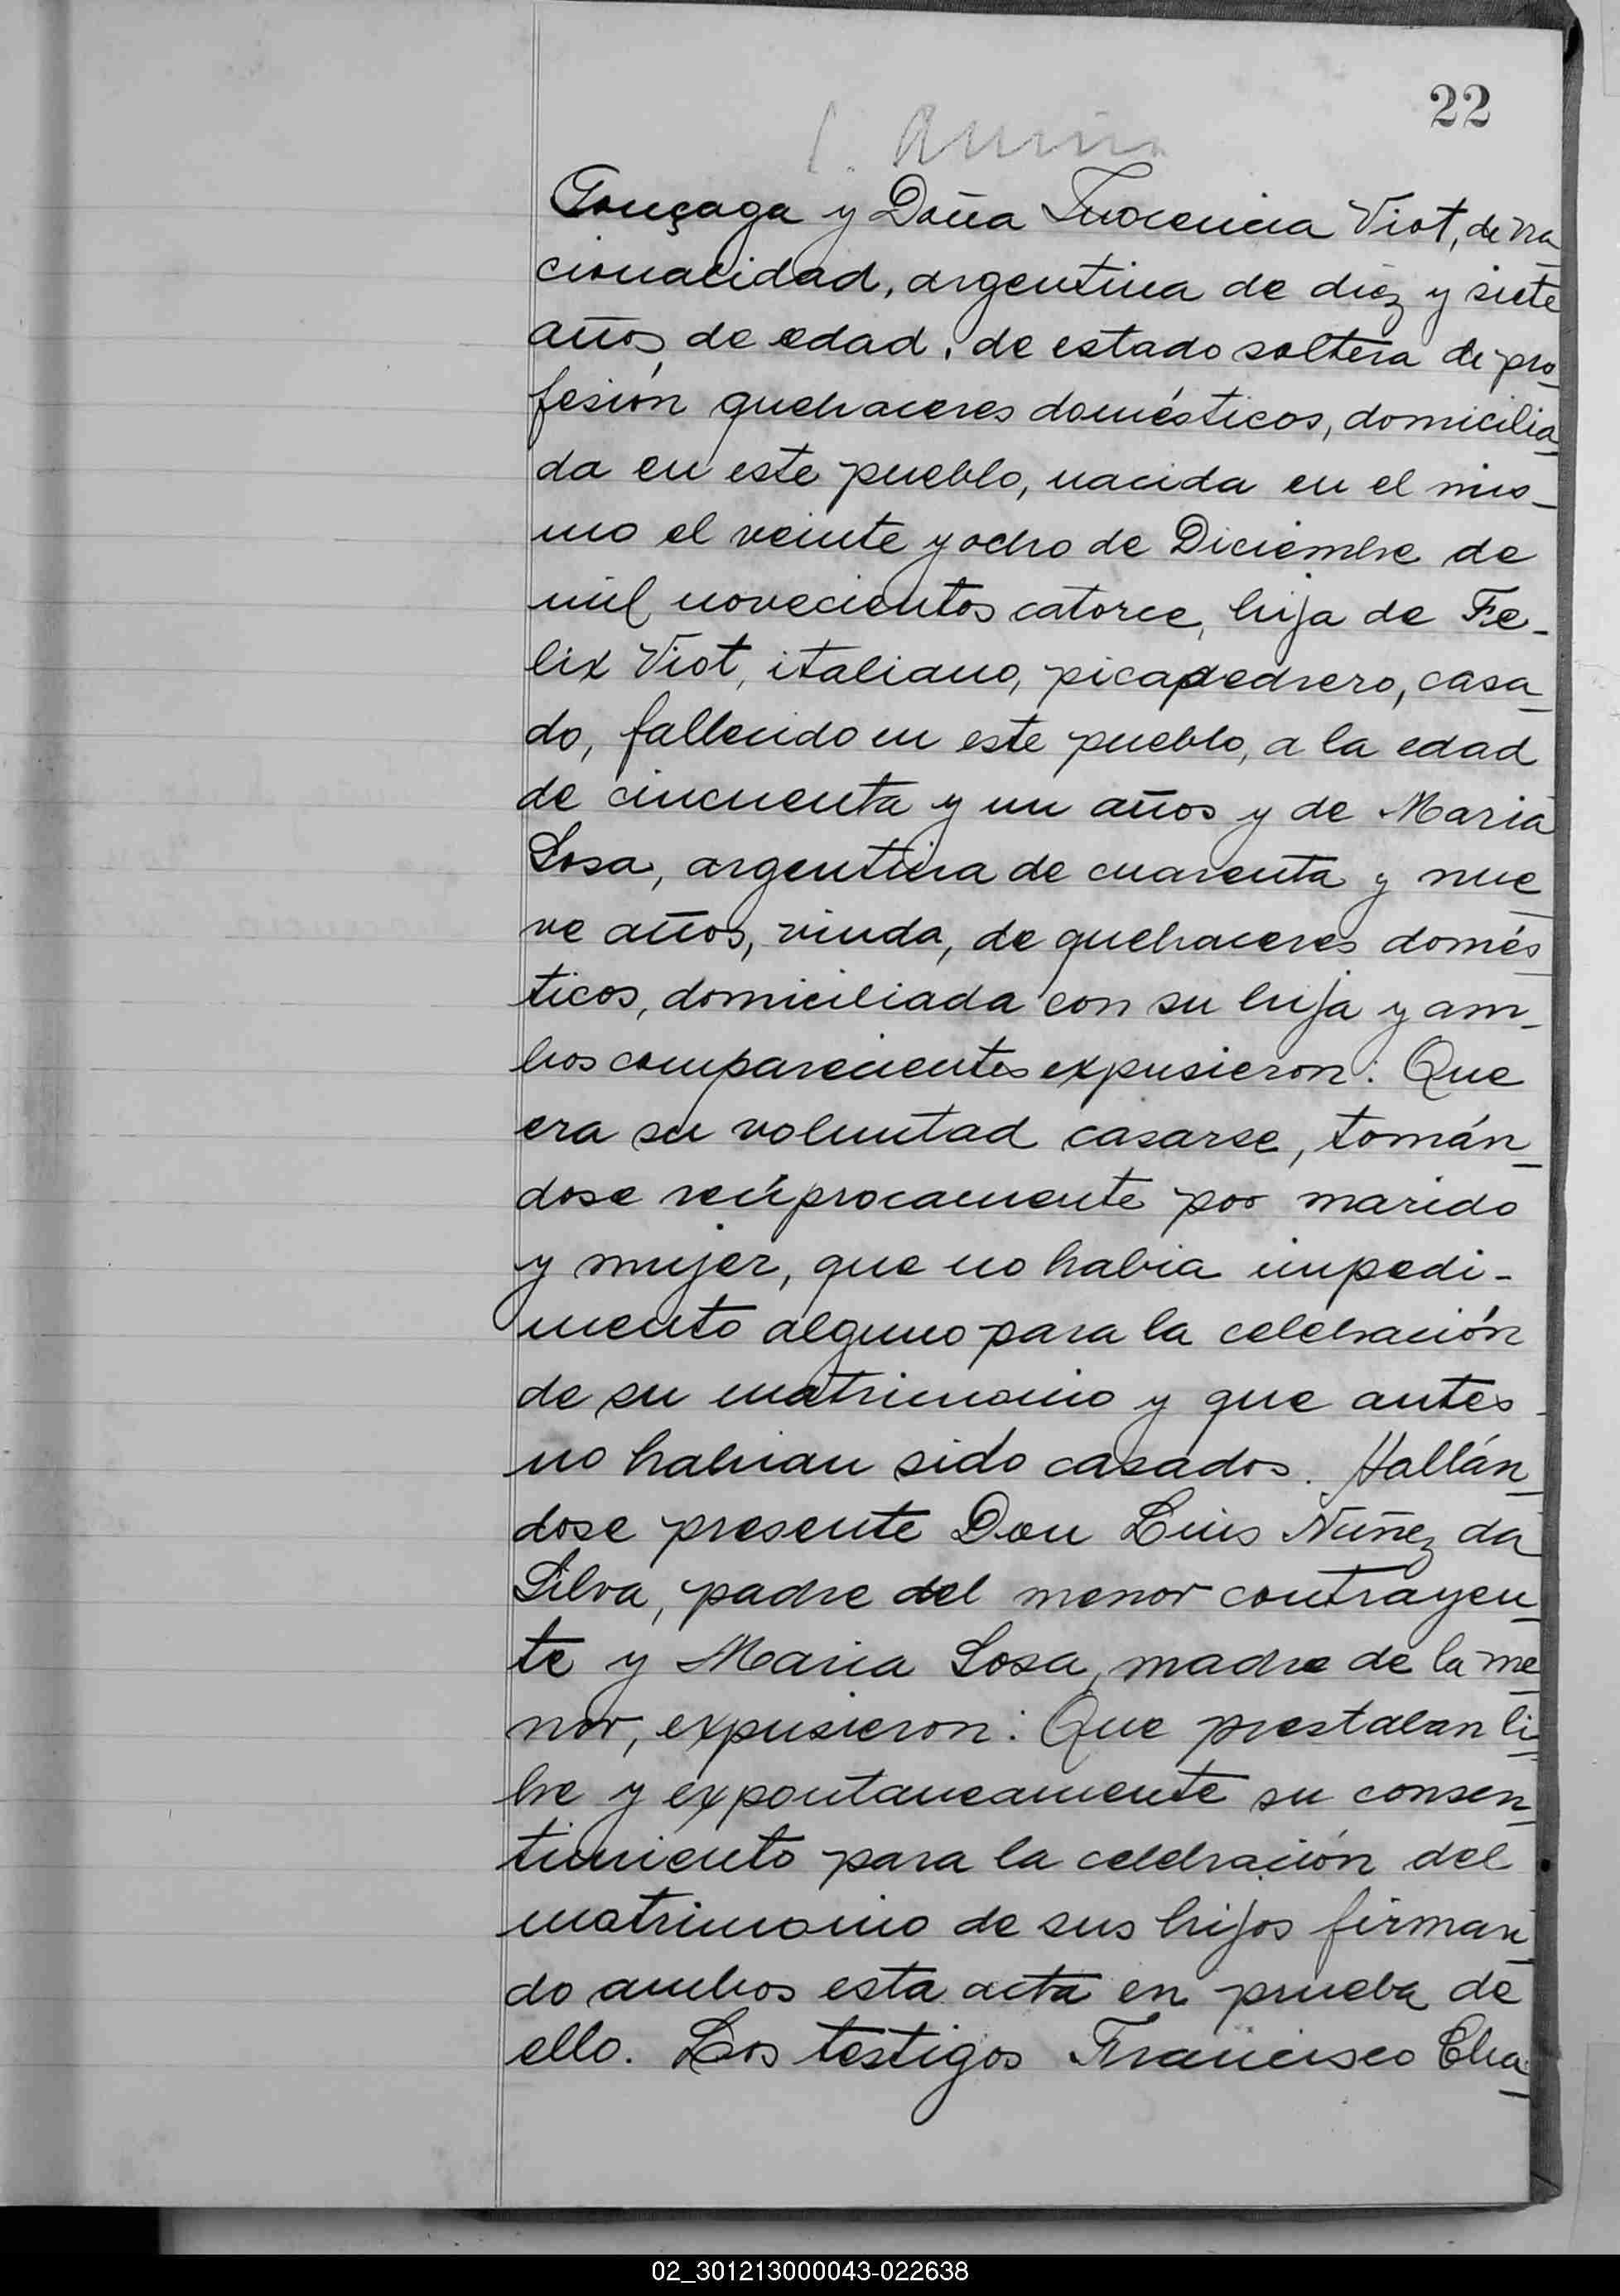 22
Gonçaga y Doña Inocencia Viot, de na
cionalidad, argentina de diez y siete
años de edad, de estado soltera de pro
fesión quehaceres domésticos, domicilia
da en este pueblo, nacida en el mis-
mo el veinte y ocho de Diciembre de
mil novecientos catorce, hija de Fe-
lix Viot, italiano, picapedrero, casa
do, fallecido en este pueblo, a la edad
de cincuenta y un años y de Maria
Sosa, argentina de cuarenta y nue
ve años, viuda, de quehaceres domés
ticos, domiciliada con su hija y am-
bos comparecientes expusieron: Que
era su voluntad casarse, tomán
dose recíprocamente por marido
y mujer, que no habia impedi-
mento alguno para la celebración
de su matrimonio y que antes
no habian sido casados. Hallán
dose presente Don Luis Núñez da
Silva, padre del menor contrayen
te y Maria Sosa, madre de la me
nor, expusieron: Que prestaban li
bre y expontaneamente su consen
timiento para la celebración del
matrimonio de sus hijos firman
do ambos esta acta en prueba de
ello. Los testigos Francisco Cha
02_301213000043-022638